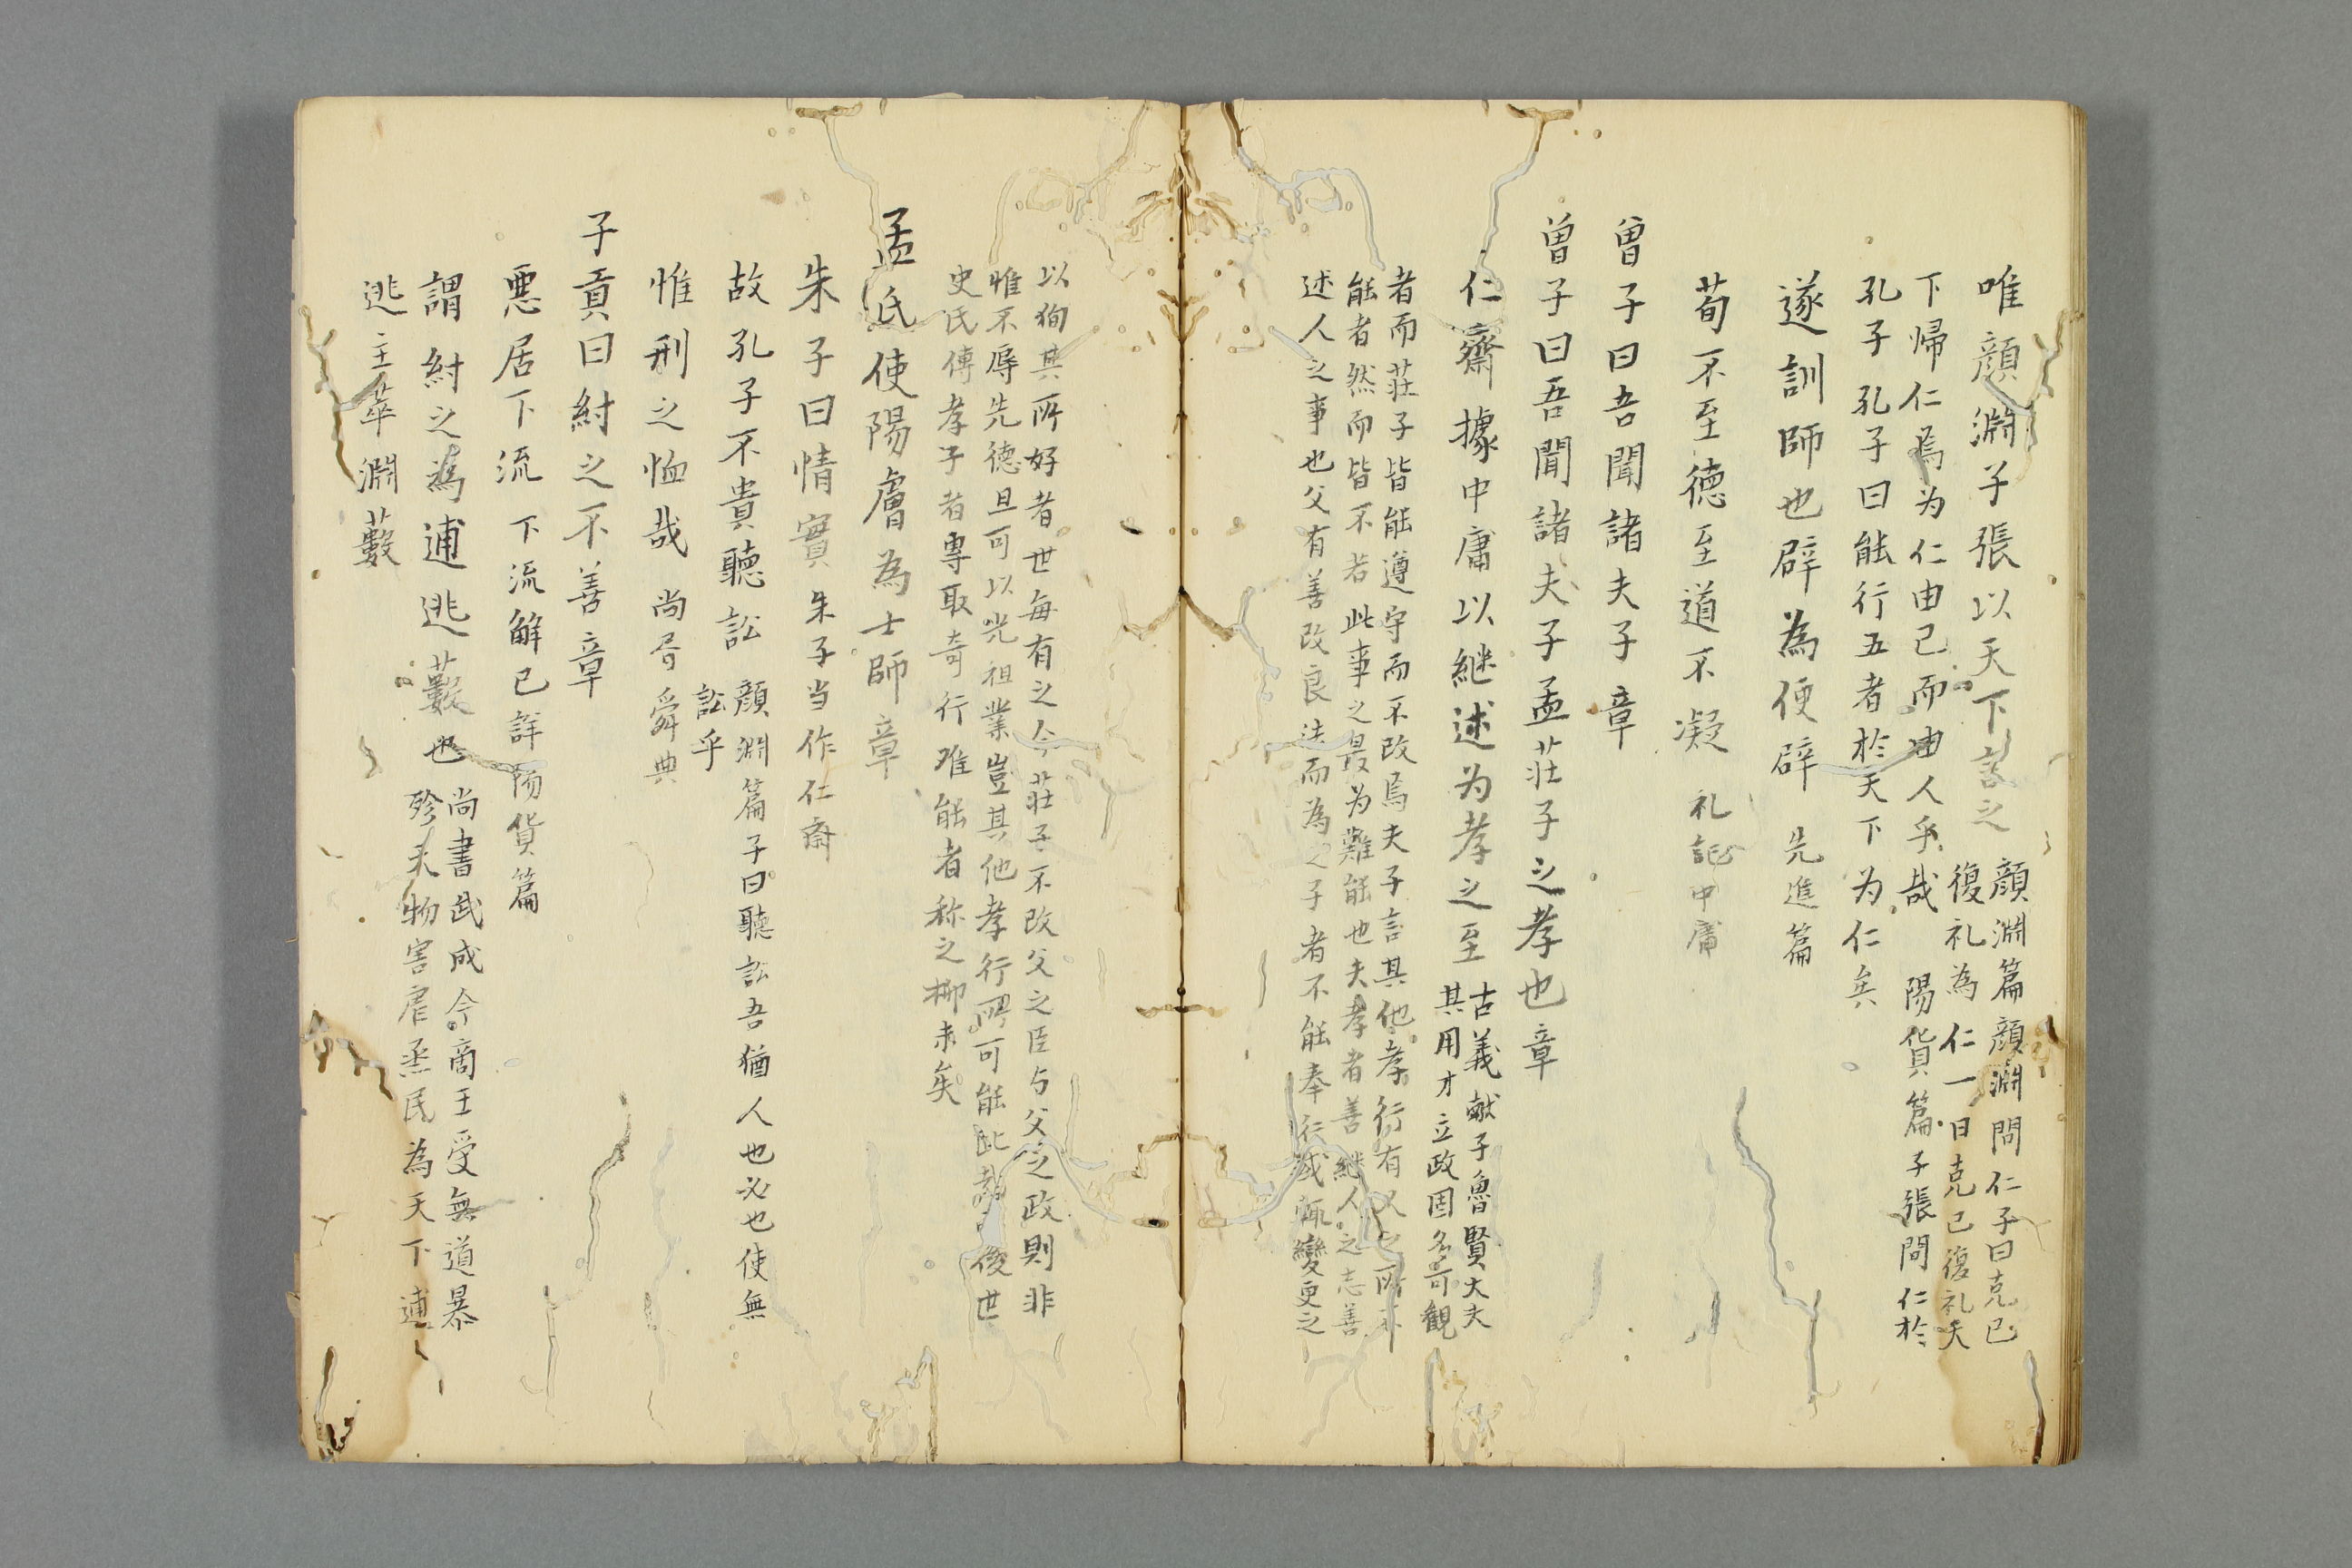 唯顔淵子張以天下言之
顔淵篇顔淵問仁子曰克己
復礼為仁一日克己復礼天
下帰仁焉为仁由己而由人乎哉
陽貨篇子張問仁於
孔子孔子曰能行五者於天下为仁矣
遂訓師也辟為便辟
先進篇
苟不至德至道不凝
礼記中庸
曽子曰吾聞諸夫子章
曽子曰吾聞諸夫子孟荘子之孝也章
仁齋據中庸以継述为孝之至
古義献子魯賢大夫
其用才立政固多可観
者而荘子皆能遵守而不改焉夫子言其他孝行有人之所不
能者然而皆不若此事之最为難能也夫孝者善継人之志善
述人之事也父有善政良法而為之子者不能奉行或輒變更之
以狥其所好者世每有之今荘子不改父之臣与父之政則非
惟不辱先德且可以光祖業豈其他孝行所可能比哉後世
史氏傳孝子者專取奇行难能者称之抑末矣
孟氏使陽膚為士師章
朱子曰情實
朱子当作仁斎
故孔子不貴聽訟
顔淵篇子曰聽訟吾猶人也必也使無
訟乎
惟刑之恤哉
尚書舜典
子貢曰紂之不善章
悪居下流
下流解已詳陽貨篇
謂紂之為逋逃藪也
尚書武成今商王受無道暴
殄天物害虐烝民為天下逋
逃主萃淵藪